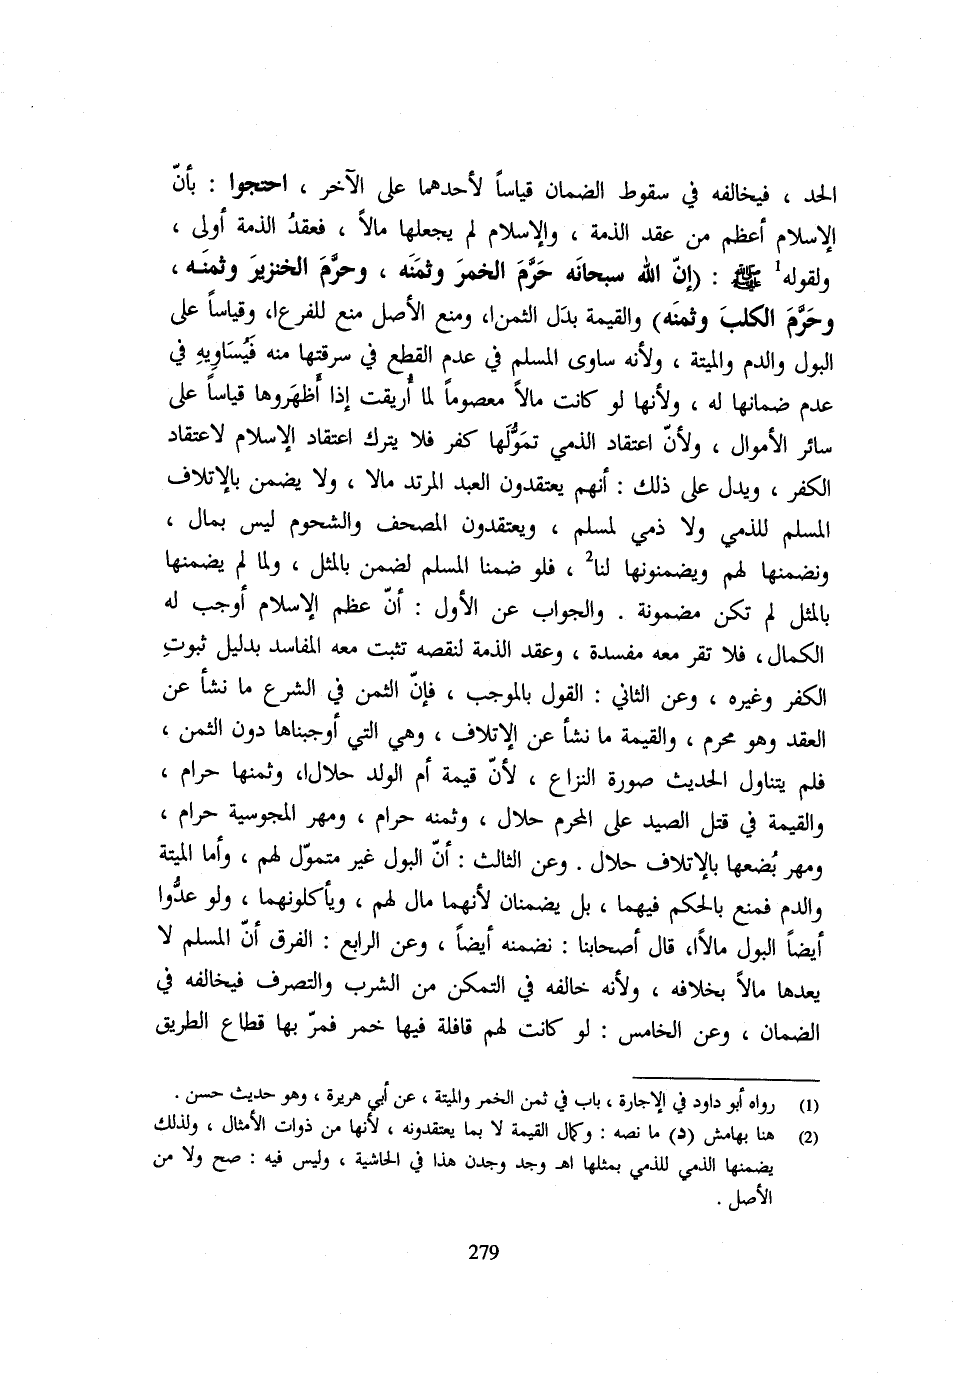 الحد ، فيخالفه في سقوط الضمان قياساً لأحدهما على الآخر ، احتجوا : بأنّ
الإسلام أعظم من عقد الذمة ، والإسلام لم يجعلها مالاً ، فعقدُ الذمة أولى ،
ولقوله1 ﷺ : (إنّ الله سبحانَه حَرَّمَ الخمرَ وثمَنَه ، وحرَّمَ الخنزيرَ وثمنَـه ،
وحَرَّمَ الكلبَ وثمنَه) والقيمة بدَل الثمنا، ومنع الأصل منع للفرعا، وقياساً على
البول والدم والميتة ، ولأنه ساوى المسلم في عدم القطع في سرقتها منه فَيُسَاوِيهِ في
عدم ضمانها له ، ولأنها لو كانت مالاً معصوماً لما أُريقت إذا أظهَروها قياساً على
سائر الأموال ، ولأنّ اعتقاد الذمي تمَوُّلَها كفر فلا يترك اعتقاد الإسلام لاعتقاد
الكفر ، ويدل على ذلك : أنهم يعتقدون العبد المرتد مالا ، ولا يضمن بالإتلاف
المسلم للذمي ولا ذمي لمسلم ، ويعتقدون المصحف والشحوم ليس بمال ،
ونضمنها لهم ويضمنونها لنا2 ، فلو ضمنا المسلم لضمن بالمثل ، ولما لم يضمنها
بالمثل لم تكن مضمونة . والجواب عن الأول : أنّ عظم الإسلام أوجب له
الكمال، فلا تقر معه مفسدة ، وعقد الذمة لنقصه تثبت معه المفاسد بدليل ثبوتِ
الكفر وغيره ، وعن الثاني : القول بالموجب ، فإنّ الثمن في الشرع ما نشأ عن
العقد وهو محرم ، والقيمة ما نشأ عن الإتلاف ، وهي التي أوجبناها دون الثمن ،
فلم يتناول الحديث صورة النزاع ، لأنّ قيمة أم الولد حلالا، وثمنها حرام ،
والقيمة في قتل الصيد على المحرم حلال ، وثمنه حرام ، ومهر المجوسية حرام ،
ومهر بُضعها بالإتلاف حلال . وعن الثالث : أنّ البول غير متموّل لهم ، وأما الميتة
والدم فمنع بالحكم فيهما ، بل يضمنان لأنهما مال لهم ، ويأكلونهما ، ولو عدُّوا
أيضاً البول مالاا، قال أصحابنا : نضمنه أيضاً ، وعن الرابع : الفرق أنّ المسلم لا
يعدها مالاً بخلافه ، ولأنه خالفه في التمكن من الشرب والتصرف فيخالفه في
الضمان ، وعن الخامس : لو كانت لهم قافلة فيها خمر فمرّ بها قطاع الطريق
(1) رواه أبو داود في الإجارة ، باب في ثمن الخمر والميتة ، عن أبي هريرة ، وهو حديث حسن .
(2) هنا بهامش (د) ما نصه : وكمال القيمة لا بما يعتقدونه ، لأنها من ذوات الأمثال ، ولذلك
يضمنها الذمي للذمي بمثلها اهـ وجد وجدن هذا في الحاشية ، وليس فيه : صح ولا من
الأصل .
279